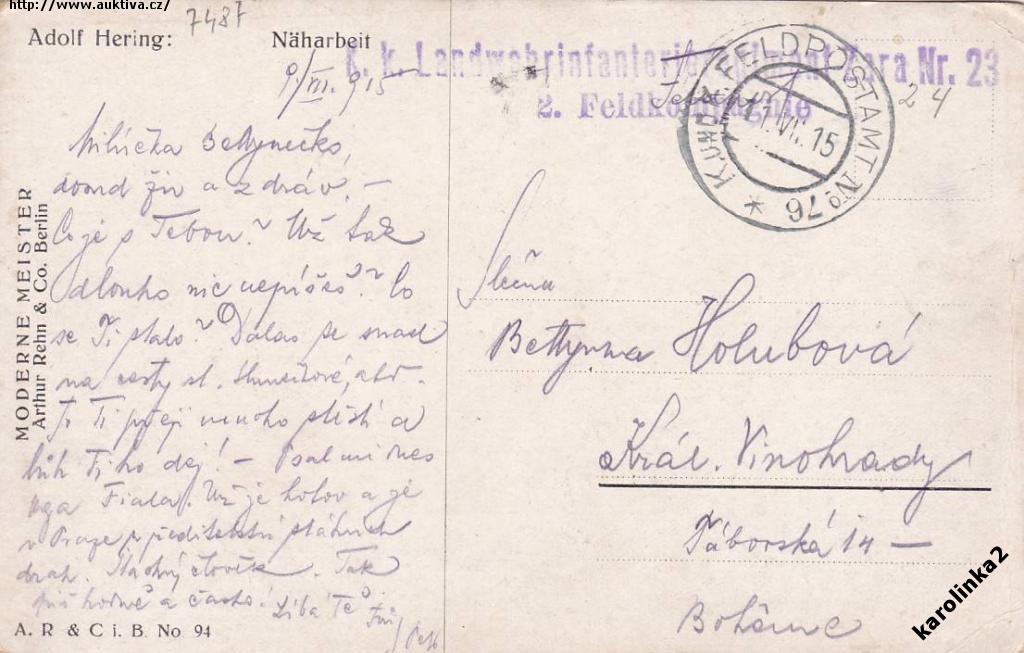 http://www.auktiva.cz/
7487
Adolf Hering: Näharbeit
9/VII. 915
K. k. Landwehrinfanterieregiment Zara Nr. 23
2. Feldkompagnie
K.u.K. FELDPOSTAMT No 76
VII. 15
24
MODERNE MEISTER
Arthur Rehn & Co. Berlin
Milúčká Bettynečko,
dosud živ a zdráv, –
Co je s Tebou? Už tak
dlouho nic nepíšeš? Co
se Ti stalo? Dalas se snad
na cesty sl.
Ti přeji mnoho štěstí a
bůh Ti ho dej! – Psal mi
Fiala. Už je hotov a je
v Praze ředitelství státních
drah. Šťastný člověk. Tak
piš hodně a často! Líbá Tě
Slečna
Bettynna Holubová
Král. Vinohrady
Táborská 14 –
Bohême
A. R & C i. B. No 94
karolinka2